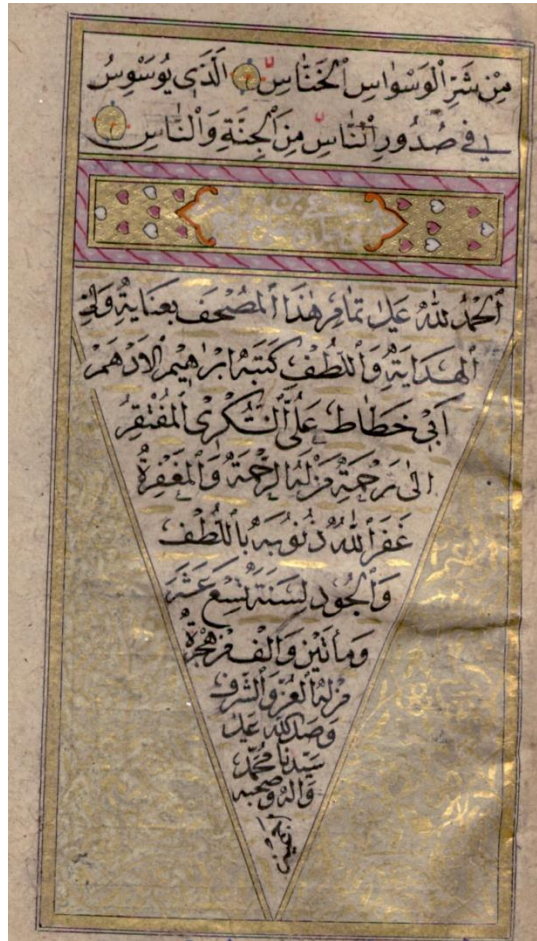 مِنْ شَرِّ الْوَسْوَاسِ الْخَنَّاسِ الَّذِي يُوَسْوِسُ
فِي صُدُورِ النَّاسِ مِنَ الْجِنَّةِ وَالنَّاسِ
الحمد لله على تمام هذا المصحف بعناية ولي
الهداية واللطف كتبه ابراهيم الادهم
خطاط على التكريتي المفتقر
الى رحمة من له الرحمة والمغفرة
غفر الله ذنوبه باللطف
والجود لسنة تسع عشر
ومأتين والف من هجرة
من له العز والشرف
وصلى الله على
سيدنا محمد
واله وصحبه
اجمعين